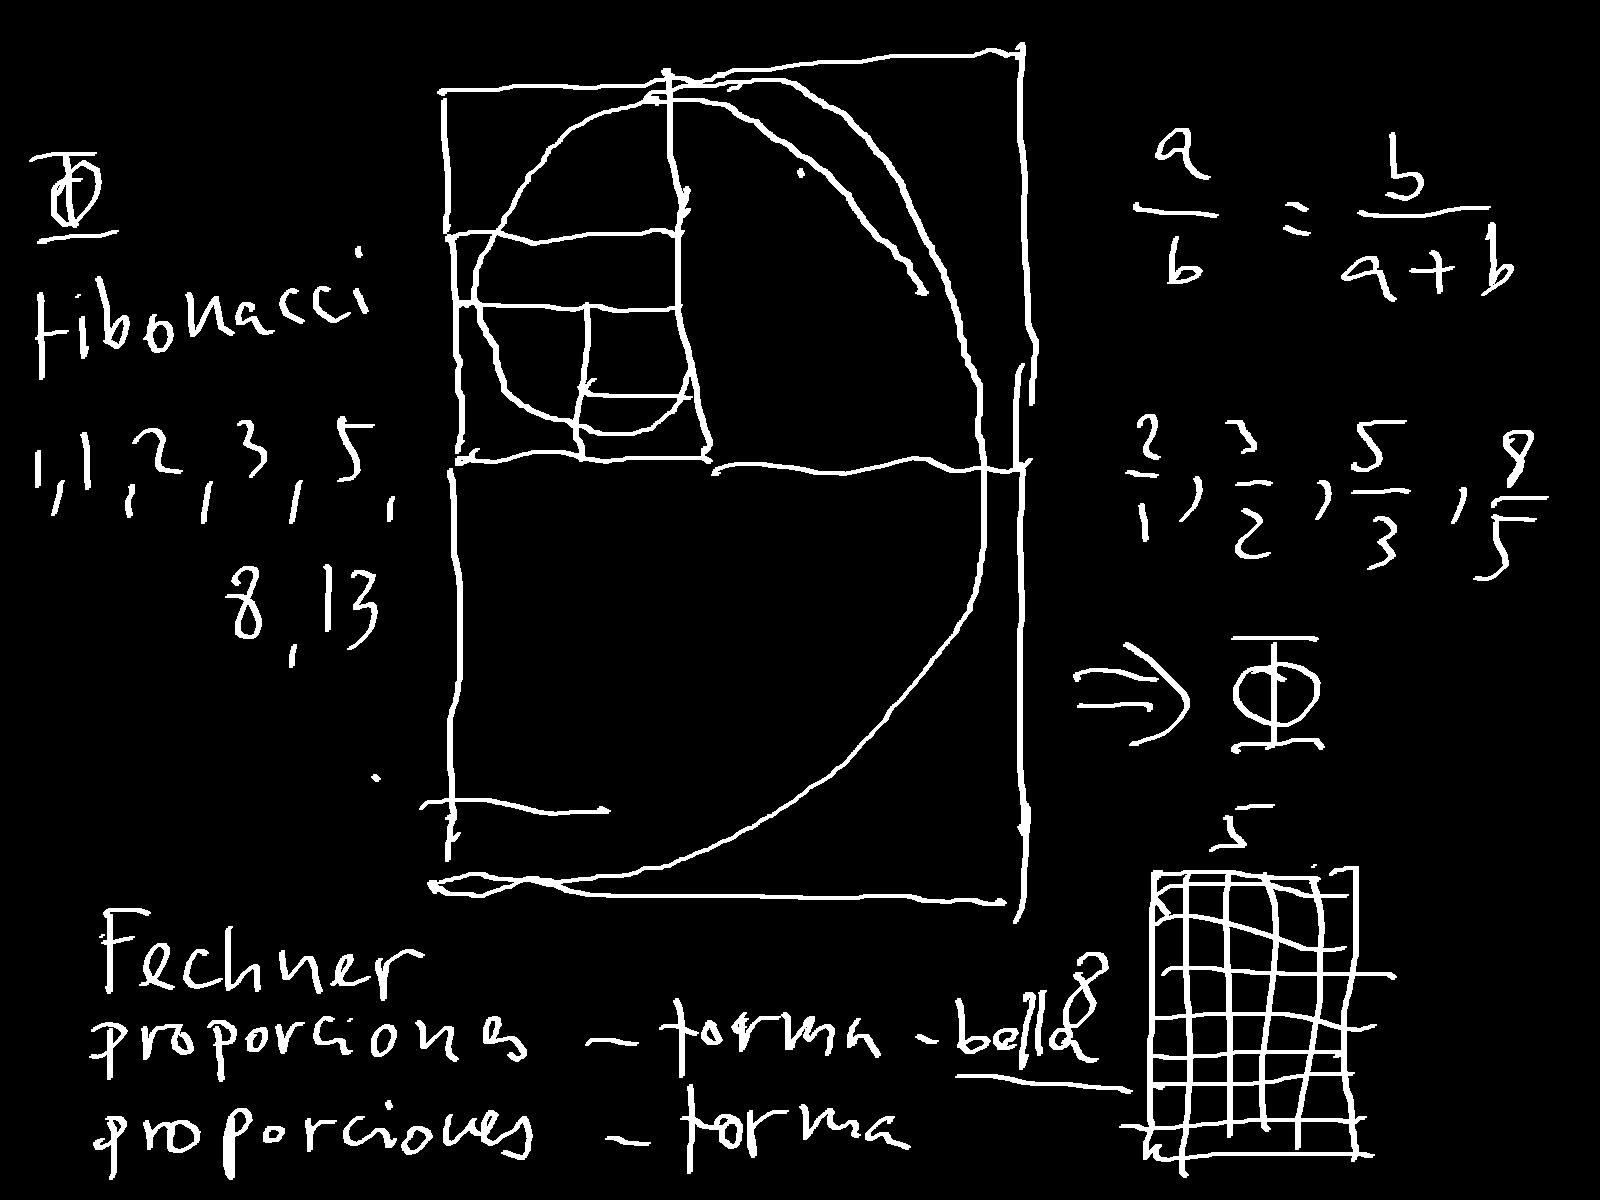 Φ
Fibonacci
1, 1, 2, 3, 5,
8, 13
a/b = b/(a+b)
2/1, 3/2, 5/3, 8/5
⇒ Φ
5
8
Fechner
proporciones – forma - bella
proporciones – forma